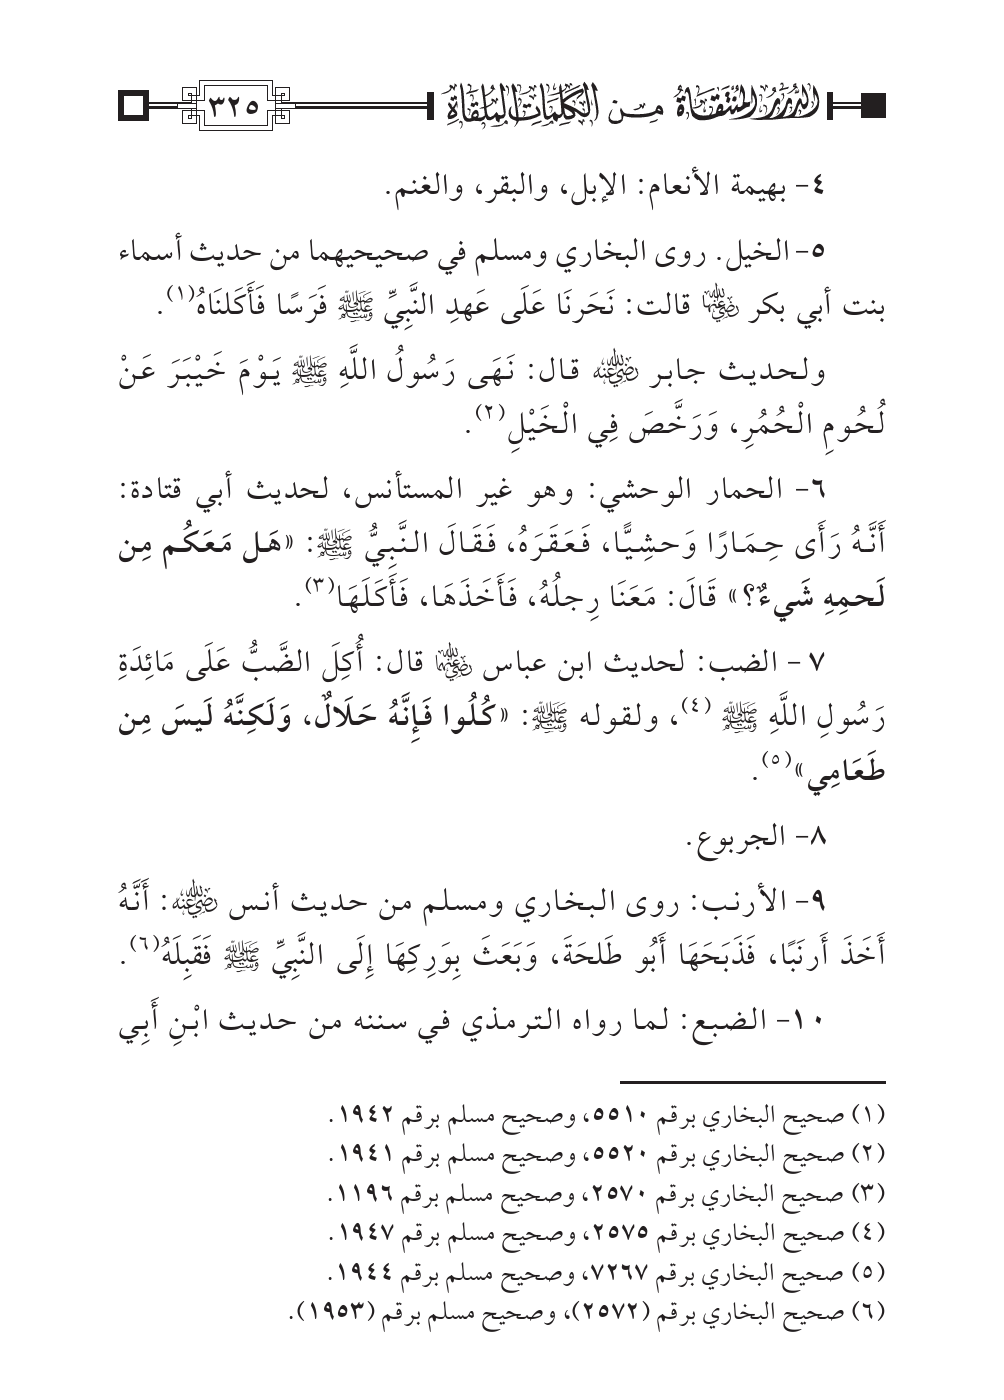 الدُّرَرُ المُنْتَقَاةُ مِـن الكَلِمَاتِ المُلْقَاةِ ٣٢٥
٤- بهيمة الأنعام: الإبل، والبقر، والغنم.
٥- الخيل. روى البخاري ومسلم في صحيحيهما من حديث أسماء
بنت أبي بكر رضي الله عنها قالت: نَحَرنَا عَلَى عَهدِ النَّبِيِّ ﷺ فَرَسًا فَأَكَلنَاهُ(١).
ولحديث جابر رضي الله عنه قال: نَهَى رَسُولُ اللَّهِ ﷺ يَوْمَ خَيْبَرَ عَنْ
لُحُومِ الْحُمُرِ، وَرَخَّصَ فِي الْخَيْلِ(٢).
٦- الحمار الوحشي: وهو غير المستأنس، لحديث أبي قتادة:
أَنَّهُ رَأَى حِمَارًا وَحشِيًّا، فَعَقَرَهُ، فَقَالَ النَّبِيُّ ﷺ: «هَل مَعَكُم مِن
لَحمِهِ شَيءٌ؟» قَالَ: مَعَنَا رِجلُهُ، فَأَخَذَهَا، فَأَكَلَهَا(٣).
٧ - الضب: لحديث ابن عباس رضي الله عنهما قال: أُكِلَ الضَّبُّ عَلَى مَائِدَةِ
رَسُولِ اللَّهِ ﷺ (٤)، ولقوله ﷺ: «كُلُوا فَإِنَّهُ حَلَالٌ، وَلَكِنَّهُ لَيسَ مِن
طَعَامِي»(٥).
٨- الجربوع.
٩- الأرنب: روى البخاري ومسلم من حديث أنس رضي الله عنه: أَنَّهُ
أَخَذَ أَرنَبًا، فَذَبَحَهَا أَبُو طَلحَةَ، وَبَعَثَ بِوَرِكِهَا إِلَى النَّبِيِّ ﷺ فَقَبِلَهُ(٦).
١٠- الضبع: لما رواه الترمذي في سننه من حديث ابْنِ أَبِي
(١) صحيح البخاري برقم ٥٥١٠، وصحيح مسلم برقم ١٩٤٢.
(٢) صحيح البخاري برقم ٥٥٢٠، وصحيح مسلم برقم ١٩٤١.
(٣) صحيح البخاري برقم ٢٥٧٠، وصحيح مسلم برقم ١١٩٦.
(٤) صحيح البخاري برقم ٢٥٧٥، وصحيح مسلم برقم ١٩٤٧.
(٥) صحيح البخاري برقم ٧٢٦٧، وصحيح مسلم برقم ١٩٤٤.
(٦) صحيح البخاري برقم (٢٥٧٢)، وصحيح مسلم برقم (١٩٥٣).